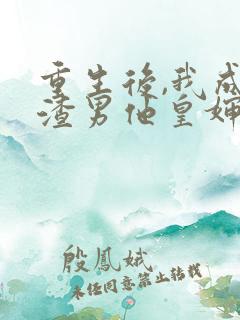 重生後,我成
渣男他皇婶
殷鳳娥
未经同意禁止转载